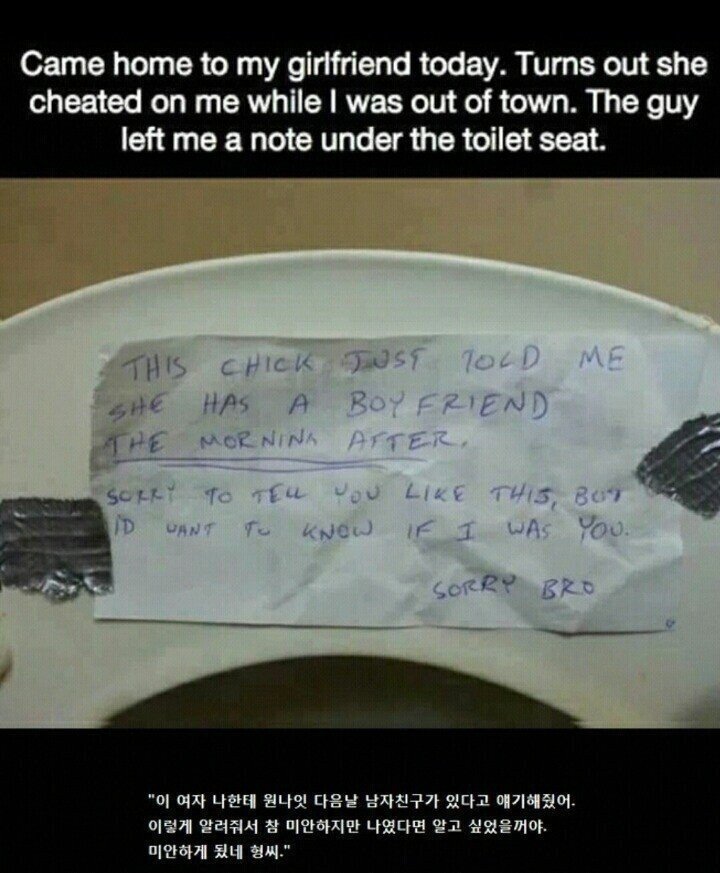 Came home to my girlfriend today. Turns out she
cheated on me while I was out of town. The guy
left me a note under the toilet seat.
THIS CHICK JUST TOLD ME
SHE HAS A BOYFRIEND
THE MORNING AFTER.
SORRY TO TELL YOU LIKE THIS, BUT
I'D WANT TO KNOW IF I WAS YOU.
SORRY BRO
"이 여자 나한테 원나잇 다음날 남자친구가 있다고 얘기해줬어.
이렇게 알려줘서 참 미안하지만 나였다면 알고 싶었을꺼야.
미안하게 됐네 형씨."